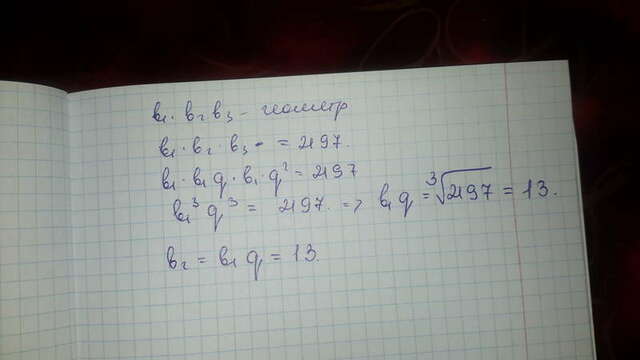 b₁· b₂ b₃ – геометр
b₁· b₂ · b₃ - = 2197.
b₁· b₁ q · b₁ q² = 2197
b₁³ q³ = 2197. => b₁ q = ³√2197 = 13.
b₂ = b₁ q = 13.